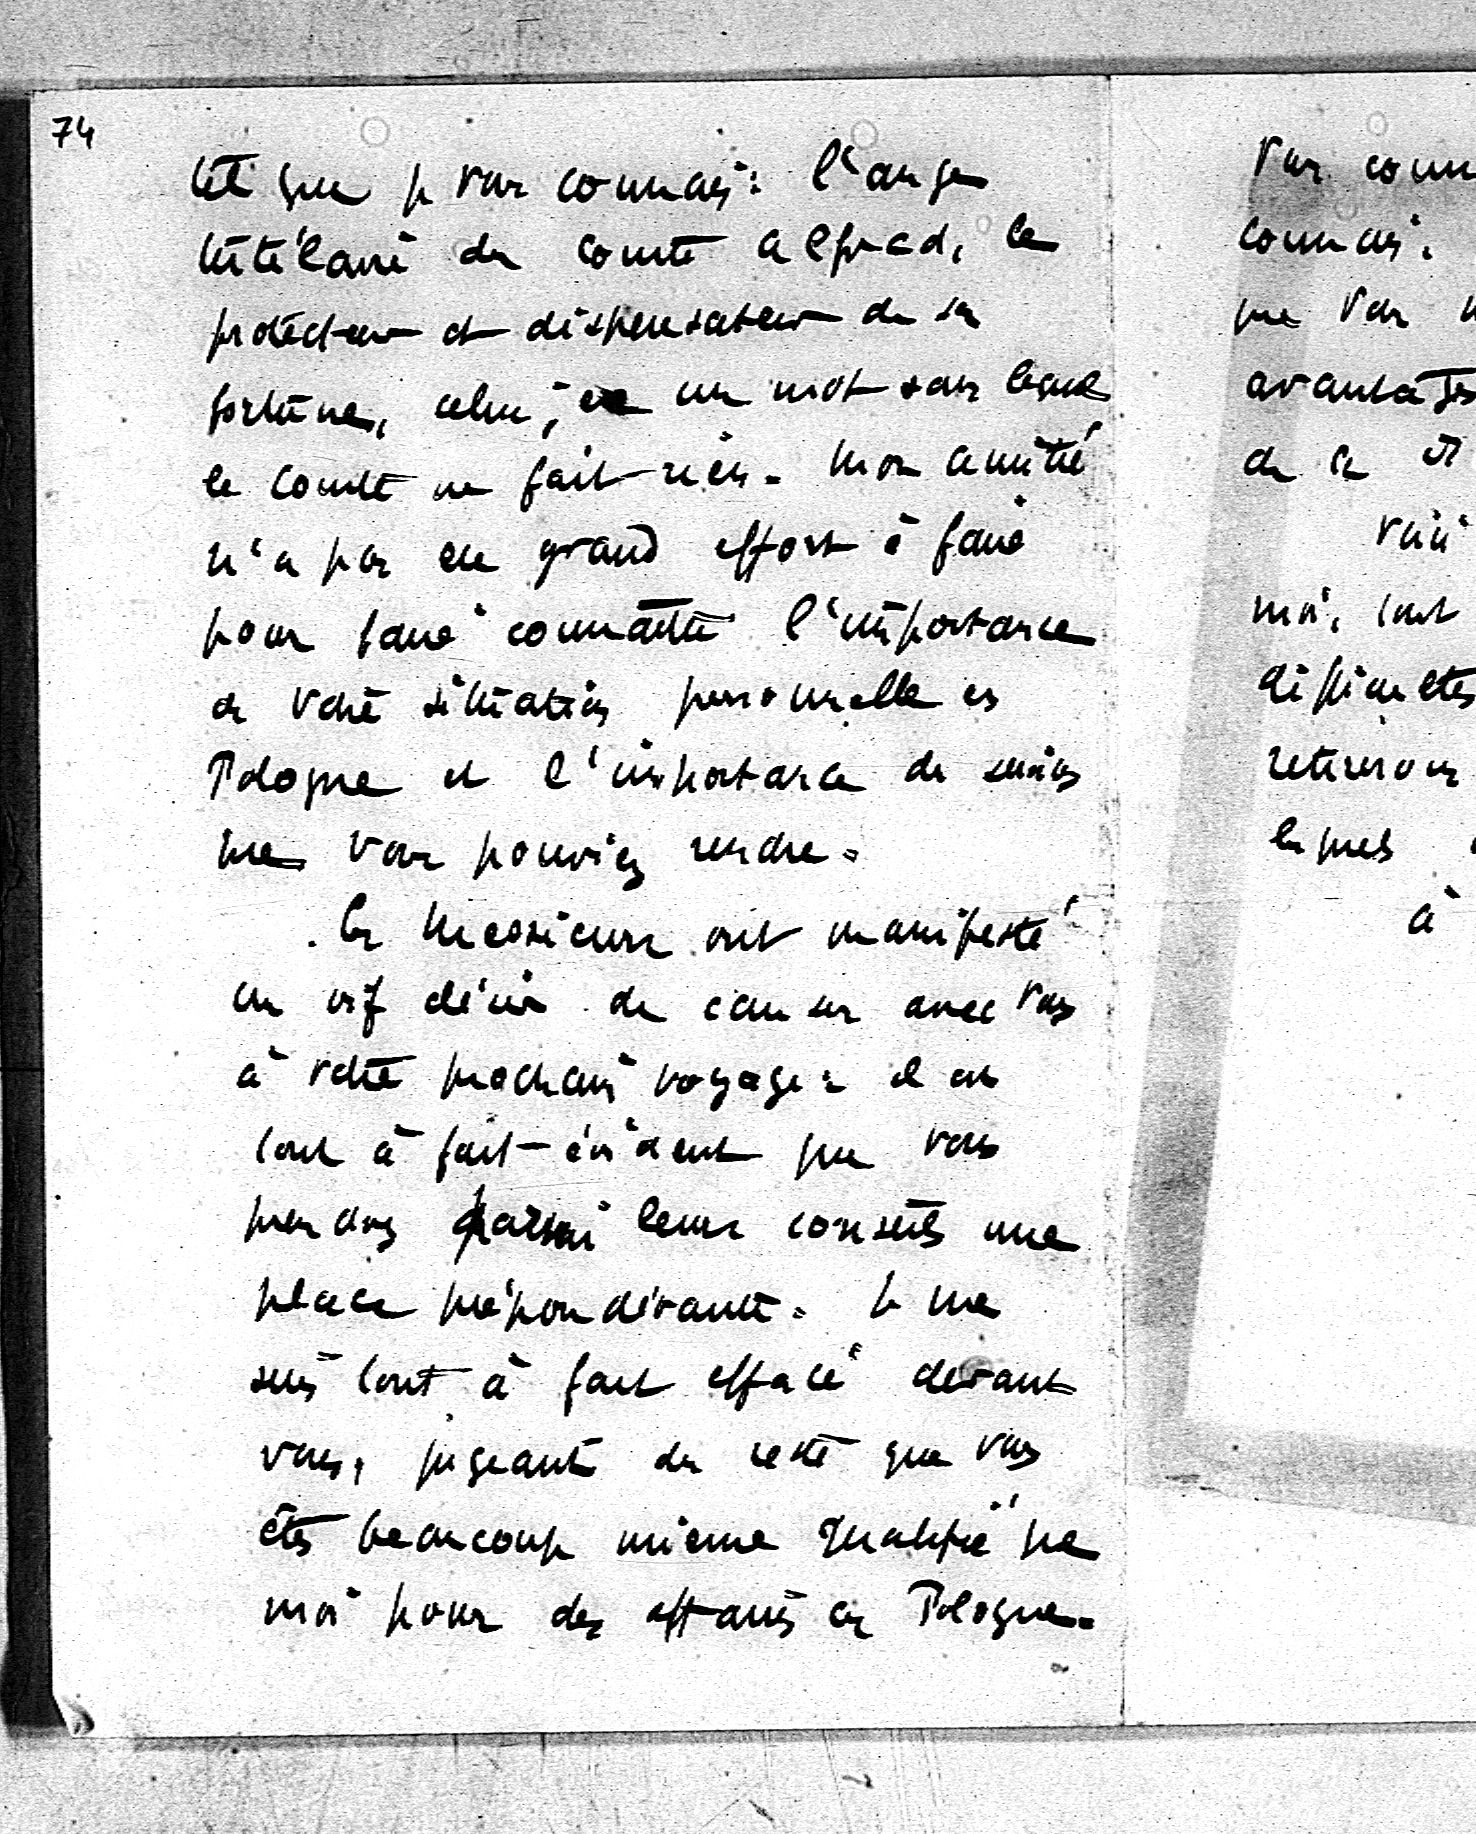 74
tel que je vous connais : l'ange
tutélaire du Comte Alfred, le
protecteur et dispensateur de sa
fortune, celui, en un mot sans lequel
le Comte ne fait rien. Mon amitié
n'a pas eu grand effort à faire
pour faire connaître l'importance
de votre situation personnelle en
Pologne et l'importance de services
que vous pouviez rendre.
Ces Messieurs ont manifesté
un vif désir de causer avec vous
à votre prochain voyage : il est
tout à fait évident que vous
prendrez parmi leurs conseils une
place prépondérante. Je me
suis tout à fait effacé devant
vous, jugeant du reste que vous
êtes beaucoup mieux qualifié que
moi pour des affaires en Pologne.
vous conn
connais.
que vous
avantages
de ce
voici
moi, tout
difficultés
retirerons
lesquels
à